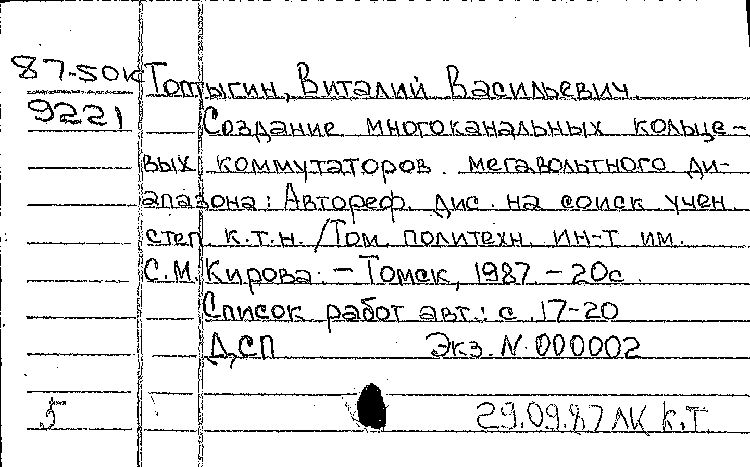 87-50к Тотыгин, Виталий Васильевич
9221 Создание многоканальных кольце-
вых коммутаторов мегавольтного ди-
апазона: Автореф. дис. на соиск учен.
степ. к.т.н. /Том. политехн. ин-т им.
С.М. Кирова. – Томск, 1987. – 20с.
Список работ авт.: с. 17-20
ДСП Экз. N. 000002
29.09.87 ЛК К.Т